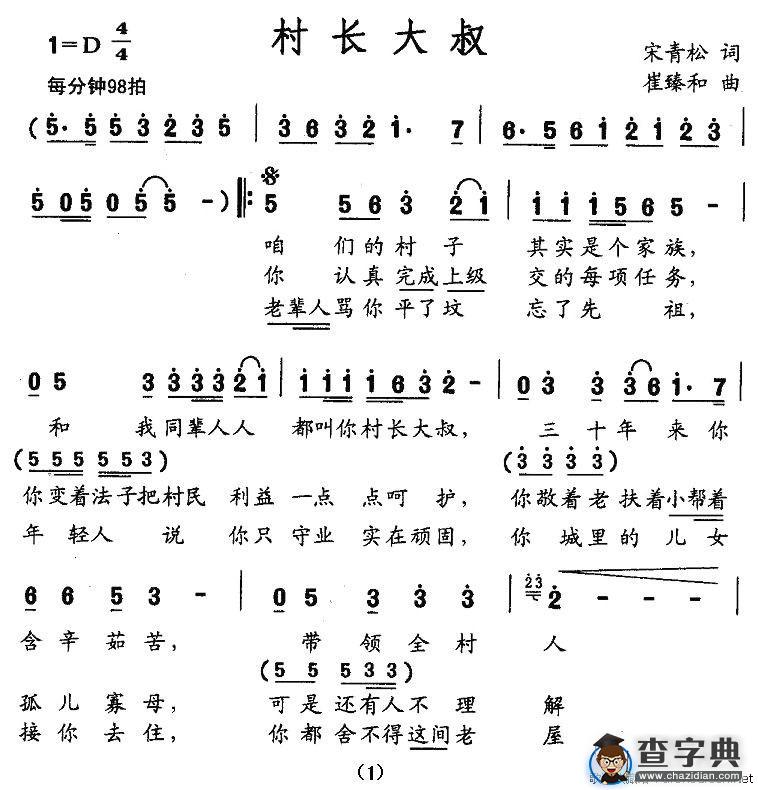 村长大叔
1=D 4/4
宋青松 词
每分钟98拍
崔臻和 曲
( 5· 5 5 3 2 3 5 | 3 6 3 2 1· 7 | 6· 5 6 1 2 1 2 3 |
5 0 5 0 5 5 - ) ‖: 5 5 6 3 2 1 | 1 1 1 5 5 - |
咱 们的村 子 其实是个家族,
你 认真完成上级 交的每项任务,
老辈人骂你平了坟 忘了先 祖,
0 5 3 3 3 3 3 2 1 | 1 1 1 1 6 3 2 - | 0 3 3 3 6 1· 7 |
和 我同辈人人 都叫你村长大叔, 三 十年 来你
( 5 5 5 5 5 3 ) ( 3 3 3 3 )
你变着法子把村民 利益一点 点呵 护, 你敬着老扶着小帮着
年 轻人 说 你只 守业 实在顽固, 你 城里的 儿女
6 6 5 3 - | 0 5 3 3 3 | 2 3 2 - - - |
含辛茹苦, 带领全村 人
( 5 5 5 3 3 )
孤儿寡母, 可是还有人不 理 解
接你去住, 你都舍不得这间老 屋
(1)
查字典
www.chazidian.com